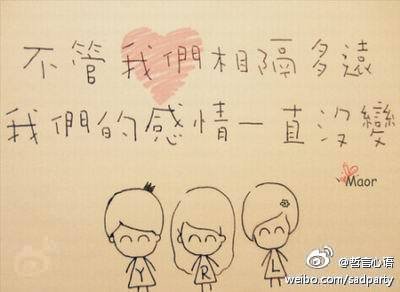 不管我們相隔多遠
我們的感情一直沒變
Maor
Y R L
@哲言心语
weibo.com/sadparty